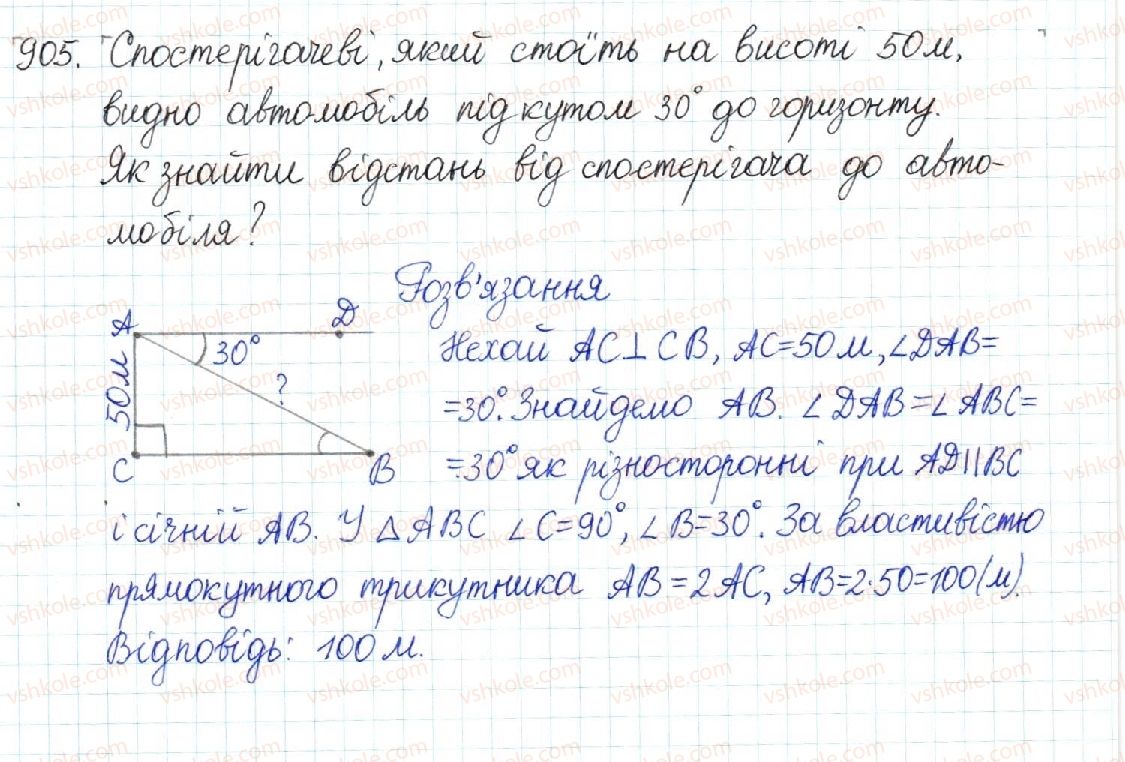 905. Спостерігачеві, який стоїть на висоті 50 м,
видно автомобіль під кутом 30° до горизонту.
Як знайти відстань від спостерігача до авто-
мобіля?
Розв'язання
A D
30°
50 м
?
C B
Нехай AC⊥CB, AC=50 м, ∠DAB=
=30°. Знайдемо AB. ∠DAB=∠ABC=
=30° як різносторонні при AD||BC
і січній AB. У △ABC ∠C=90°, ∠B=30°. За властивістю
прямокутного трикутника AB=2AC, AB=2·50=100(м).
Відповідь: 100 м.